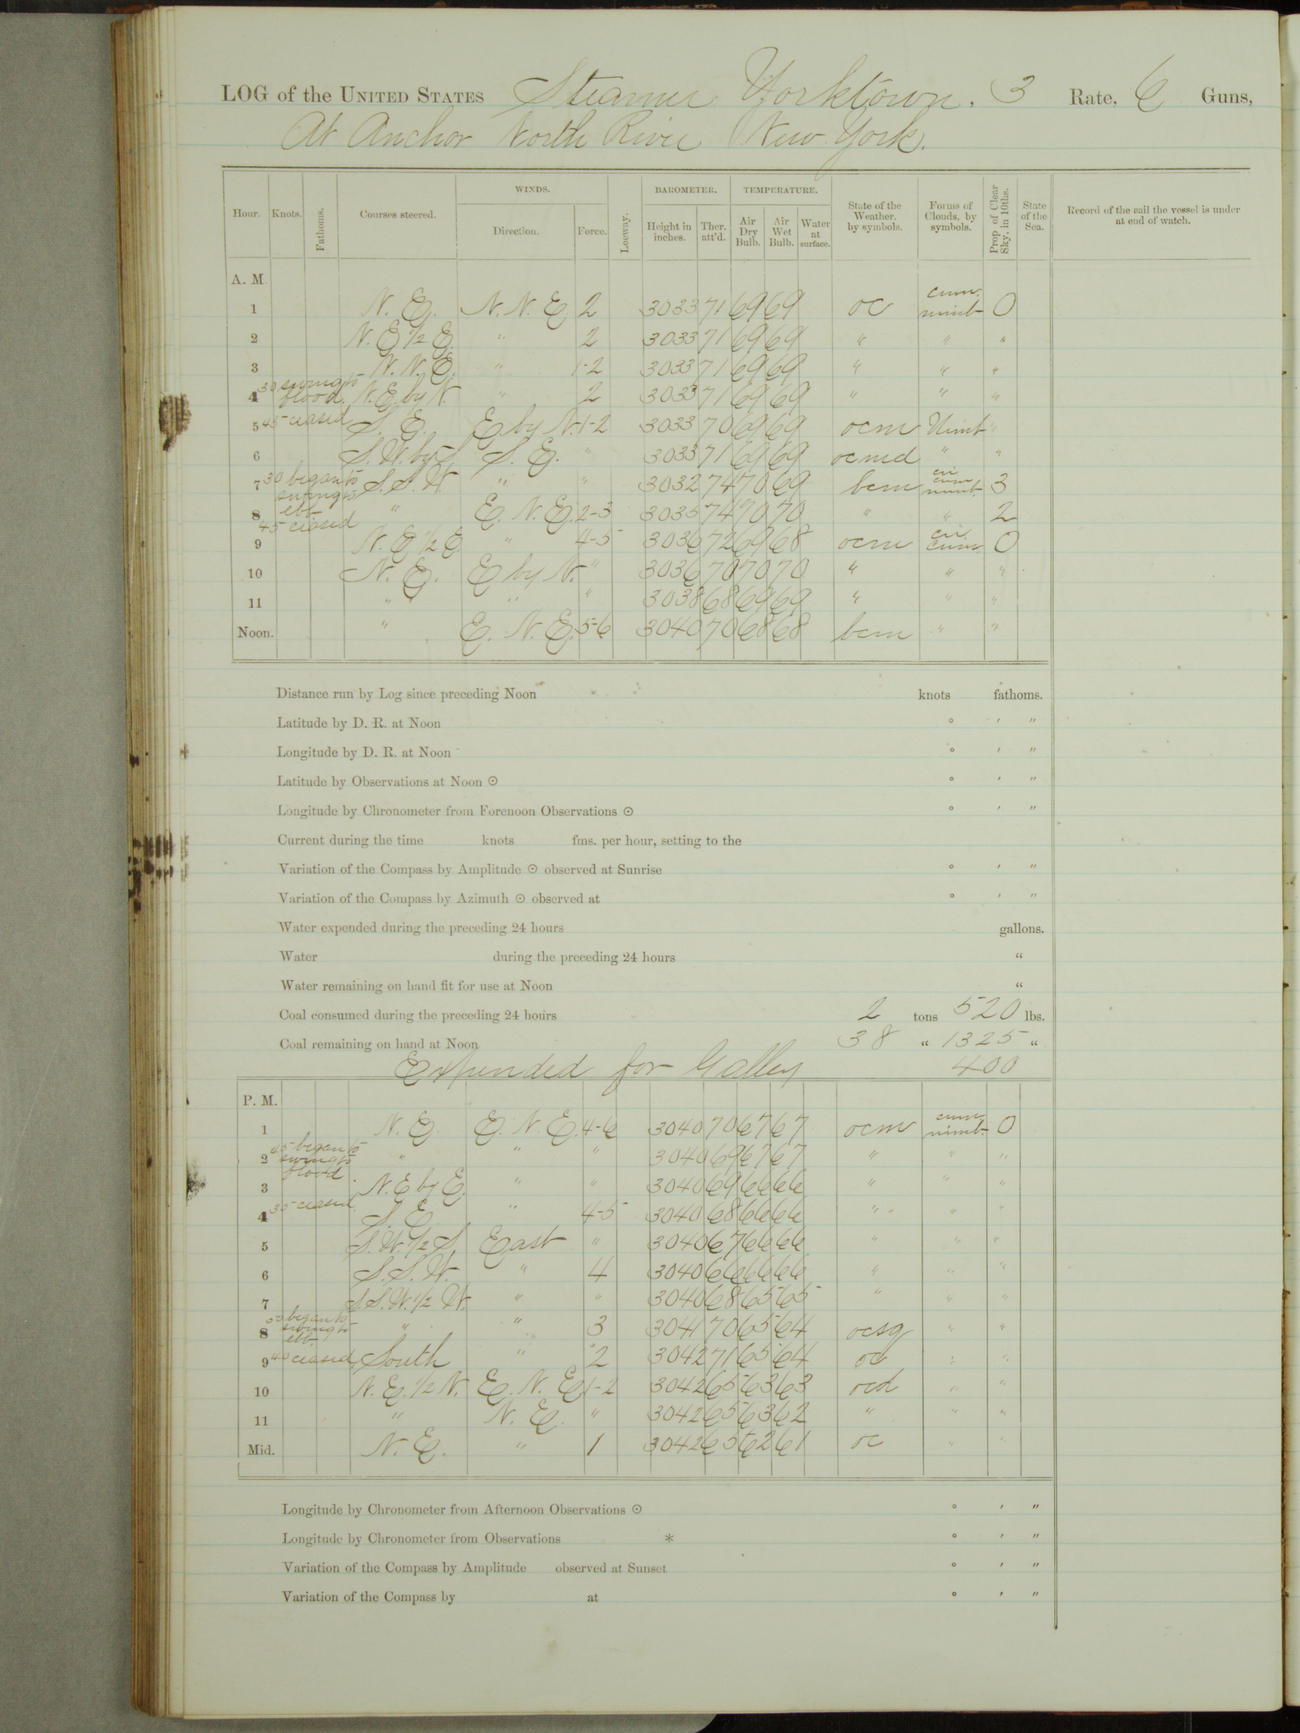 LOG of the UNITED STATES Steamer Yorktown, 3 Rate, 6 Guns,
At Anchor North River New York.
WINDS. BAROMETER. TEMPERATURE.
Hour. Knots. Fathoms. Courses steered. Direction. Force. Leeway. Height in inches. Ther. att'd. Air Dry Bulb. Air Wet Bulb. Water at surface. State of the Weather, by symbols. Forms of Clouds, by symbols. Prop. of Clear Sky, in 10ths. State of the Sea. Record of the sail the vessel is under at end of watch.
A. M.
1 N. E. N. N. E. 2 3033 71 69 69 oc cum. nimb. 0
2 N. E. 1/2 E. " 2 3033 71 69 69 " " "
3 N. N. E. " 1-2 3033 71 69 69 " " "
4 30 swing to flood. N. E. by N. " 2 3033 71 69 69 " " "
5 45 ceased S. E. E by N. 1-2 3033 70 69 69 ocm Nimb "
6 S. W. by S S. E. " 3033 71 69 69 ocmd " "
7 30 began to swing to ebb S. S. W. " " 3032 74 70 69 bcm cir cum nimb. 3
8 " E. N. E. 2-3 3035 74 70 70 " " 2
9 45 ceased N. E. 1/2 E " 4-5 3036 72 69 68 ocm cir cum 0
10 N. E. E by N. " 3036 70 70 70 " " "
11 " " " 3038 68 69 69 " " "
Noon. " E. N. E. 5-6 3040 70 68 68 bcm " "
Distance run by Log since preceding Noon knots fathoms.
Latitude by D. R. at Noon ° ′ ″
Longitude by D. R. at Noon ° ′ ″
Latitude by Observations at Noon ☉ ° ′ ″
Longitude by Chronometer from Forenoon Observations ☉ ° ′ ″
Current during the time knots fms. per hour, setting to the
Variation of the Compass by Amplitude ☉ observed at Sunrise ° ′ ″
Variation of the Compass by Azimuth ☉ observed at ° ′ ″
Water expended during the preceding 24 hours gallons.
Water during the preceding 24 hours "
Water remaining on hand fit for use at Noon "
Coal consumed during the preceding 24 hours 2 tons 520 lbs.
Coal remaining on hand at Noon 38 " 1325 "
Expended for Galley 400
P. M.
1 N. E. E. N. E. 4-6 3040 70 67 67 ocm cum. nimb. 0
2 45 began to swing to flood. " " " 3040 69 67 67 " " "
3 N. E by E. " " 3040 69 66 66 " " "
4 35 ceased S. E. " 4-5 3040 68 66 66 " " "
5 S. W. 1/2 S. East " 3040 67 66 66 " " "
6 S. S. W. " 4 3040 66 66 66 " " "
7 S. S. W. 1/2 W. " " 3040 68 65 65 " " "
8 began to swing to ebb " " 3 3041 70 65 64 ocsq " "
9 40 ceased South " 2 3042 71 65 64 oc " "
10 N. E. 1/2 N. E. N. E. 1-2 3042 65 63 63 ocd " "
11 " N. E. " 3042 65 63 62 " " "
Mid. N. E. " 1 3042 65 62 61 oc " "
Longitude by Chronometer from Afternoon Observations ☉ ° ′ ″
Longitude by Chronometer from Observations * ° ′ ″
Variation of the Compass by Amplitude observed at Sunset ° ′ ″
Variation of the Compass by at ° ′ ″